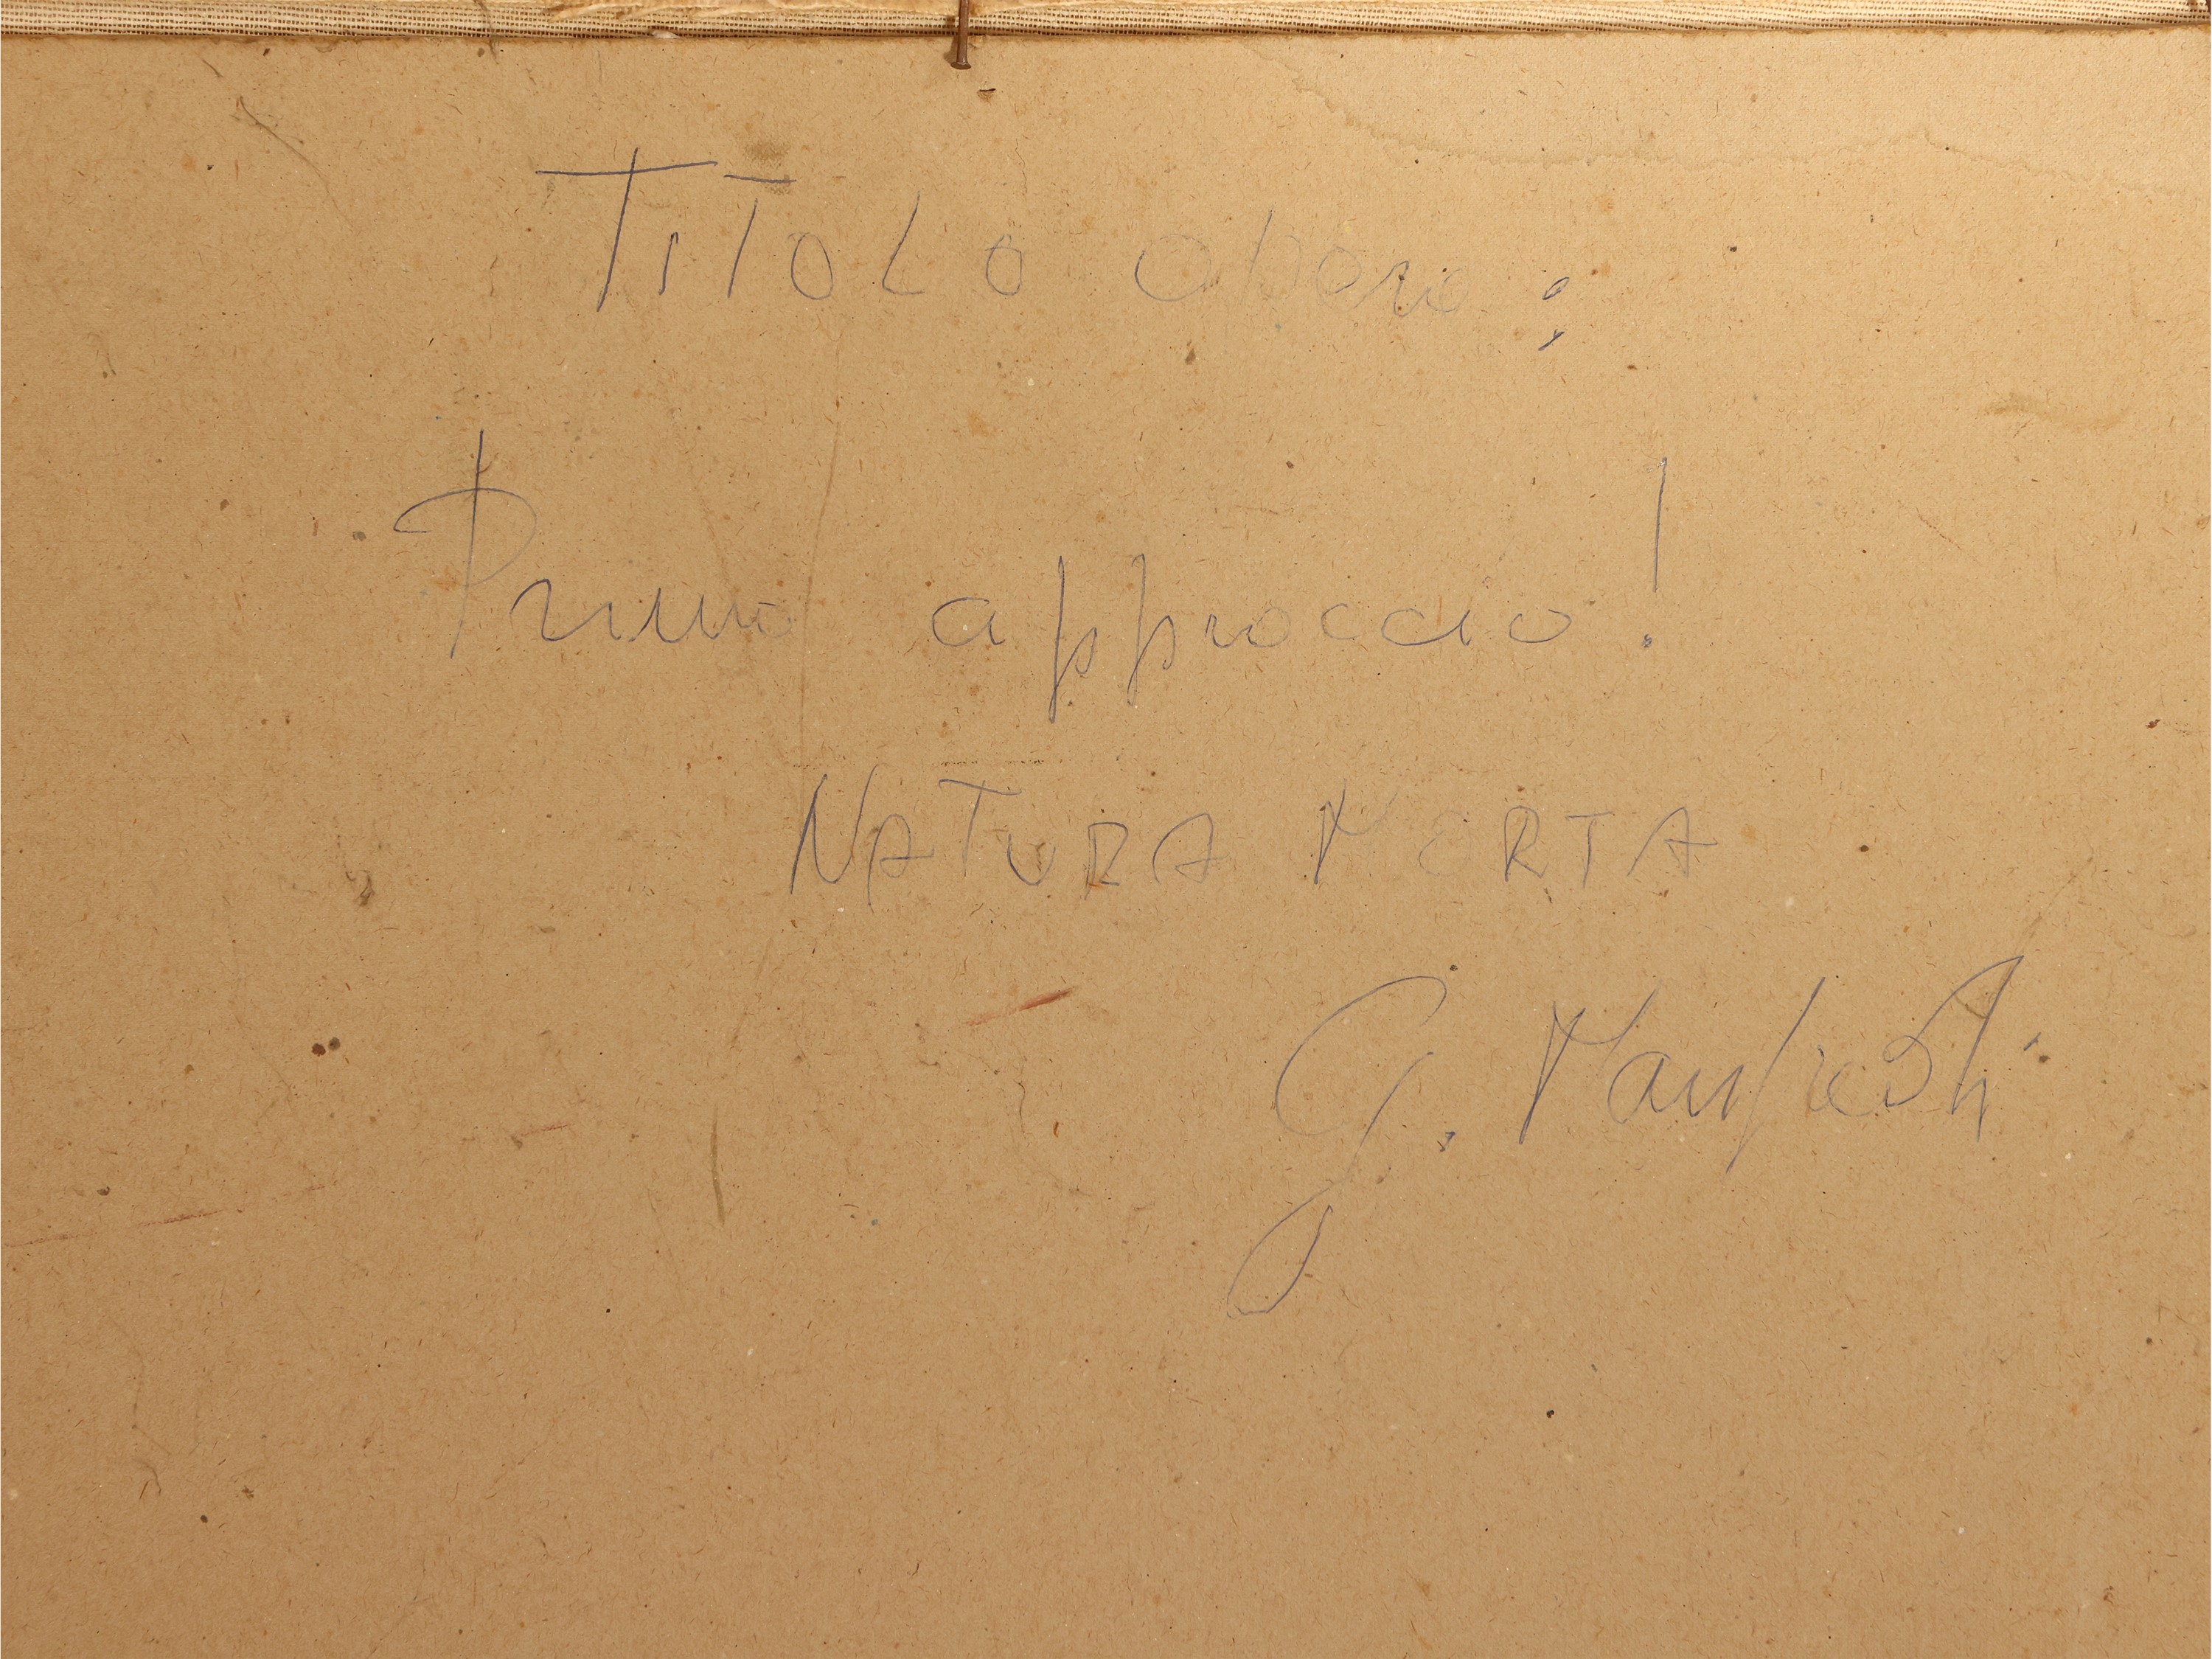 TITOLO opera:
Primo approccio!
NATURA MORTA
G. Manfredi